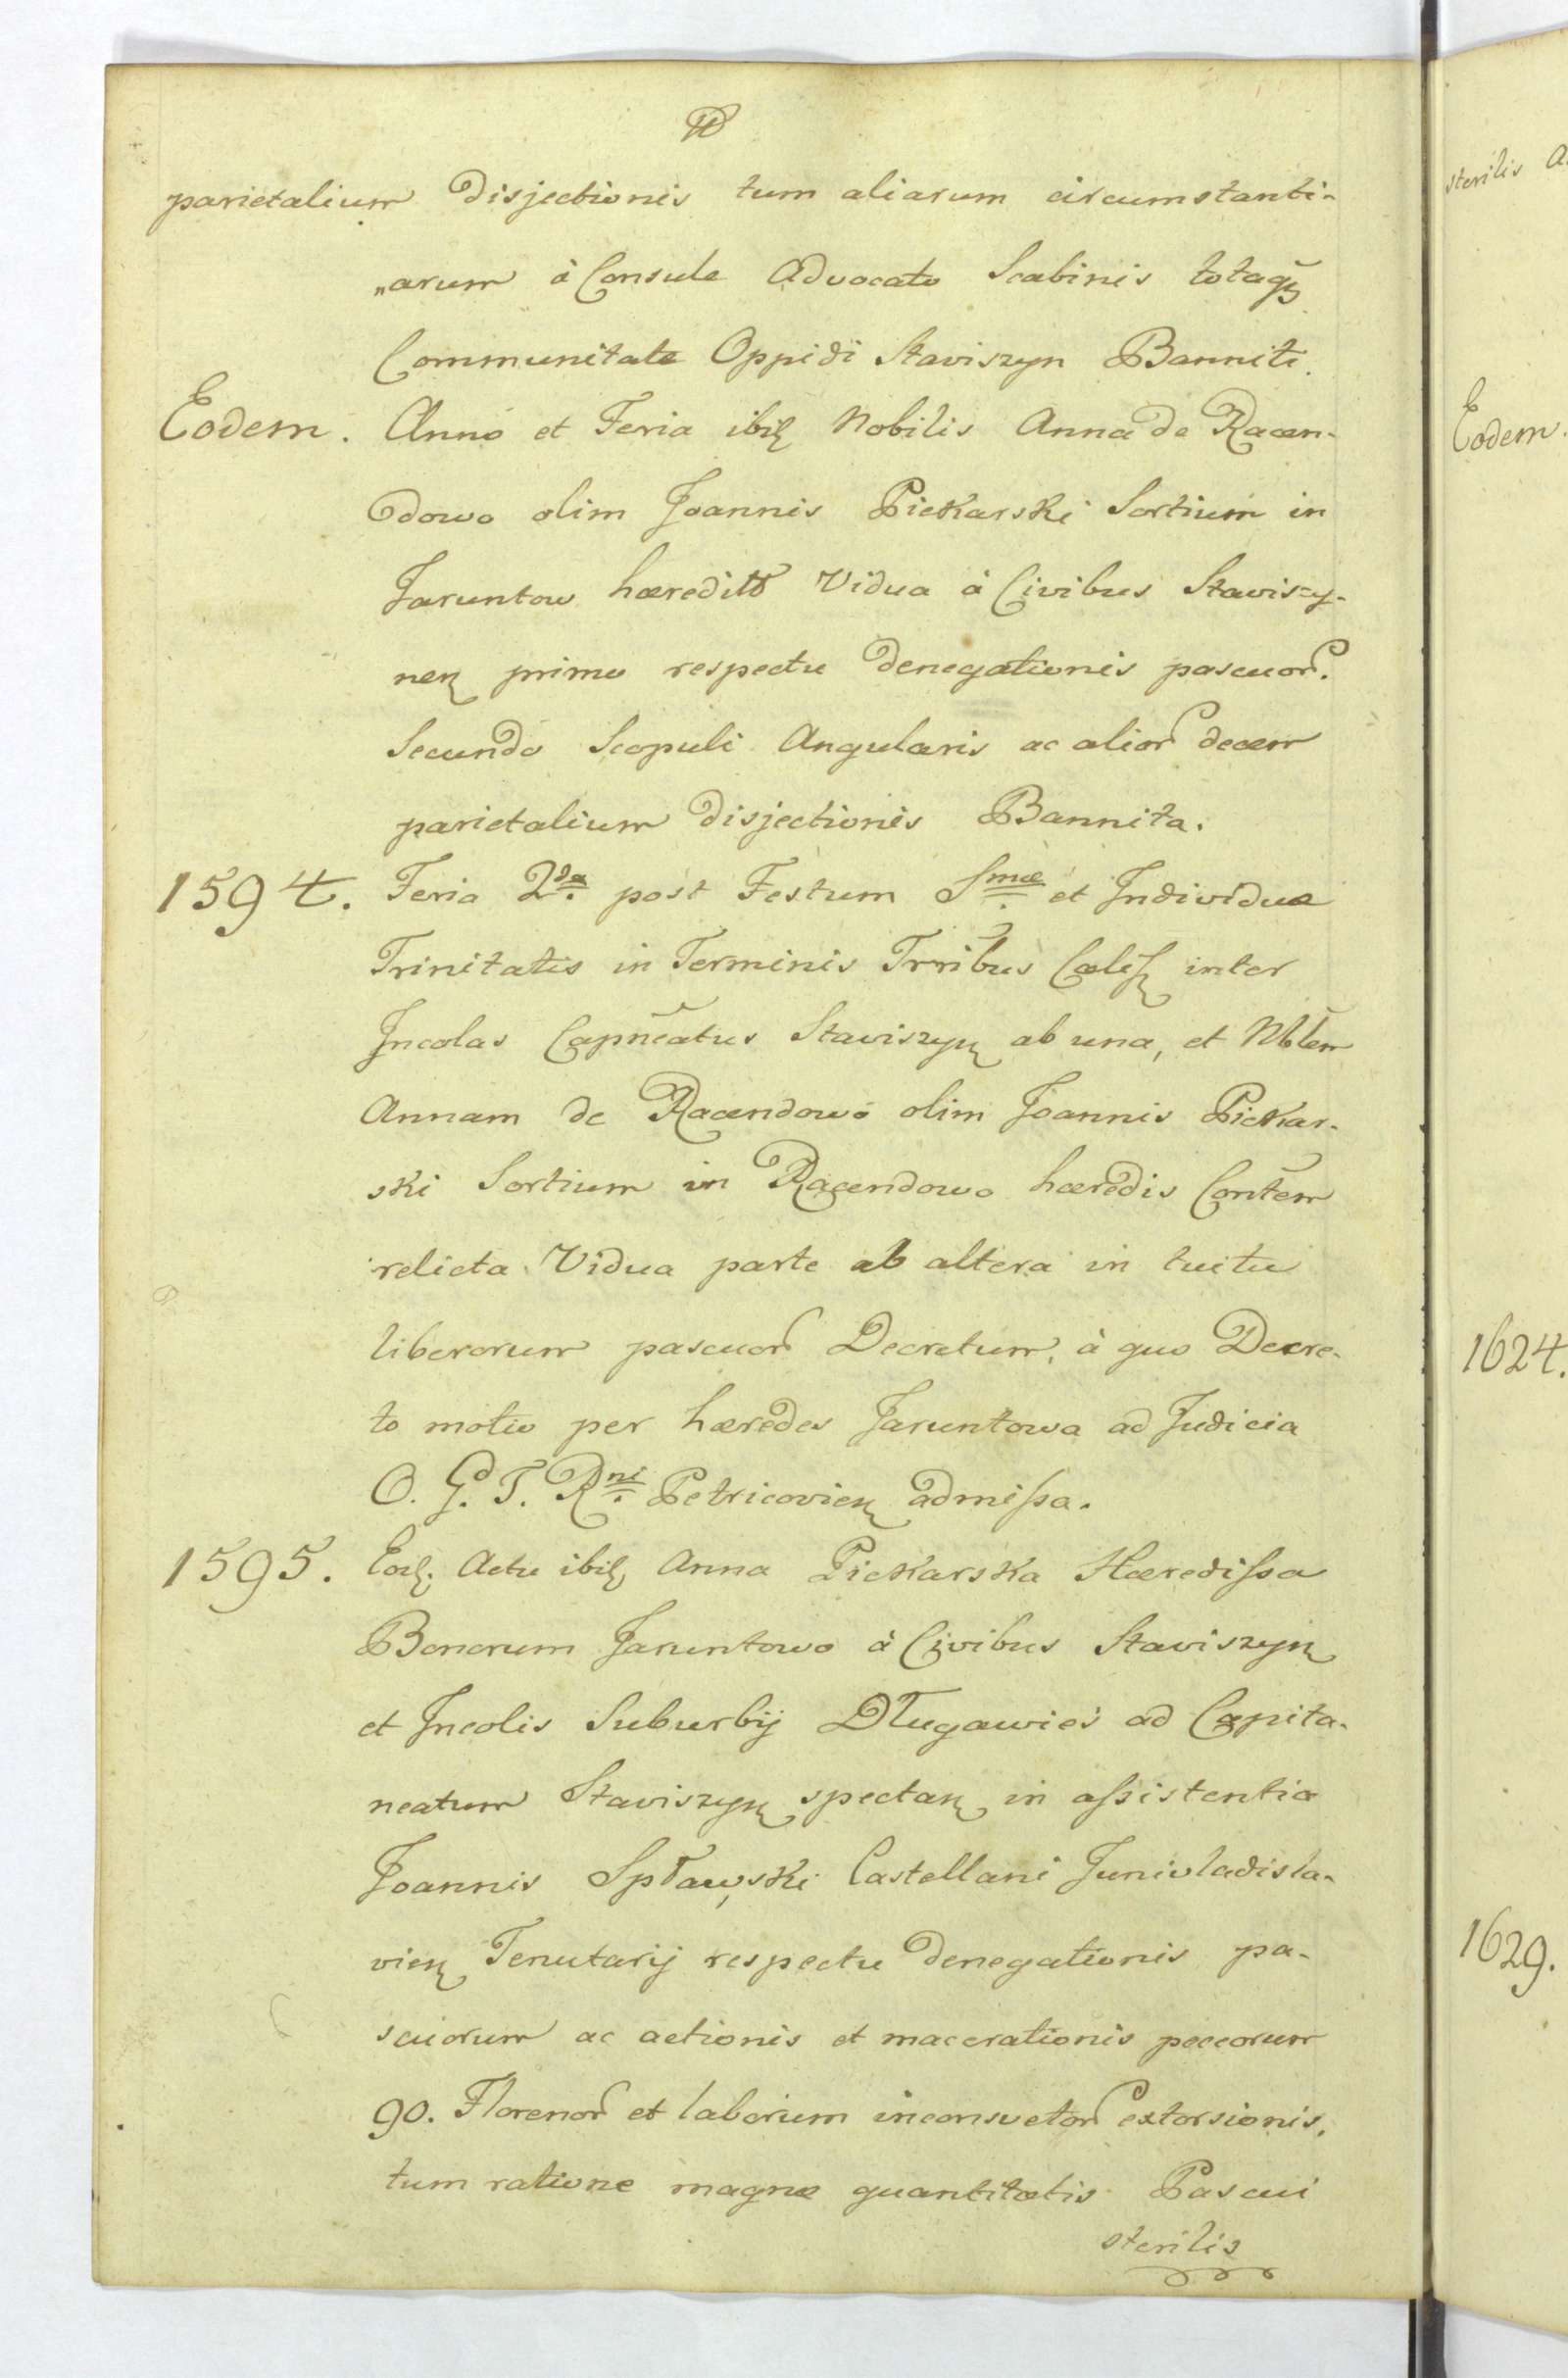 parietalium disjectionis tum aliarum circumstanti-
„arum à Consule Advocato Scabinis totaqꝫ
Communitate Oppidi Staviszyn Banniti.
Eodem. Anno et Feria ibiꝫ Nobilis Anna de Racen-
dowo olim Joannis Piekarski Sortium in
Jaruntow hæredis Vidua à Civibus Staviszy-
neꝫ primo respectu denegationis pascuor.
Secundo Scopuli Angularis ac alior decem
parietalium disjectionis Bannita.
1594. Feria 2da. post Festum Smæ. et Individuæ
Trinitatis in Terminis Trribus Calisꝫ inter
Incolas Capneatus Staviszynꝫ ab una, et Nblem
Annam de Racendowo olim Joannis Piekar-
ski Sortium in Racendowo hæredis Contem
relicta Vidua parte ab altera in tuitu
liberorum pascuor Decretum, à quo Decre-
to motio per hæredes Jaruntowa ad Judicia
O. Gd. T. Rni. Petricovienꝫ admissa.
1595. Eoꝫ. Actu ibiꝫ Anna Piekarska Hæredissa
Bonorum Jaruntowo à Civibus Staviszynꝫ
et Incolis Suburbij Długawieś ad Capita-
neatum Staviszynꝫ spectanꝫ in assistentia
Joannis Spławski Castellani Junivladisla-
vienꝫ Tenutarij respectu denegationis pa-
scuorum ac actionis et macerationis peccorum
90. Florenor et laborum inconsvetor extorsionis,
tum ratione magnæ quantitatis Pascui
sterilis
sterilis
Eodem.
1624.
1629.